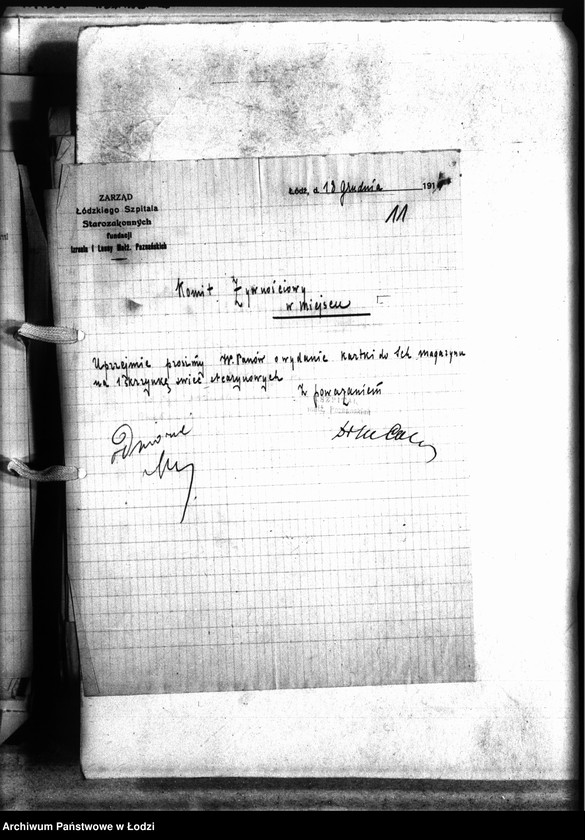 ZARZĄD
Łódzkiego Szpitala
Starozakonnych
fundacji
Izraela i Leony Małż. Poznańskich
Łódź, d. 18 Grudnia 191
11
Komit. Żywnościowy
w miejscu
Uprzejmie prosimy W. Panów o wydanie kartki do Ich magazynu
na 1 skrzynkę świec stearynowych
Z poważaniem
SZPITAL
Archiwum Państwowe w Łodzi